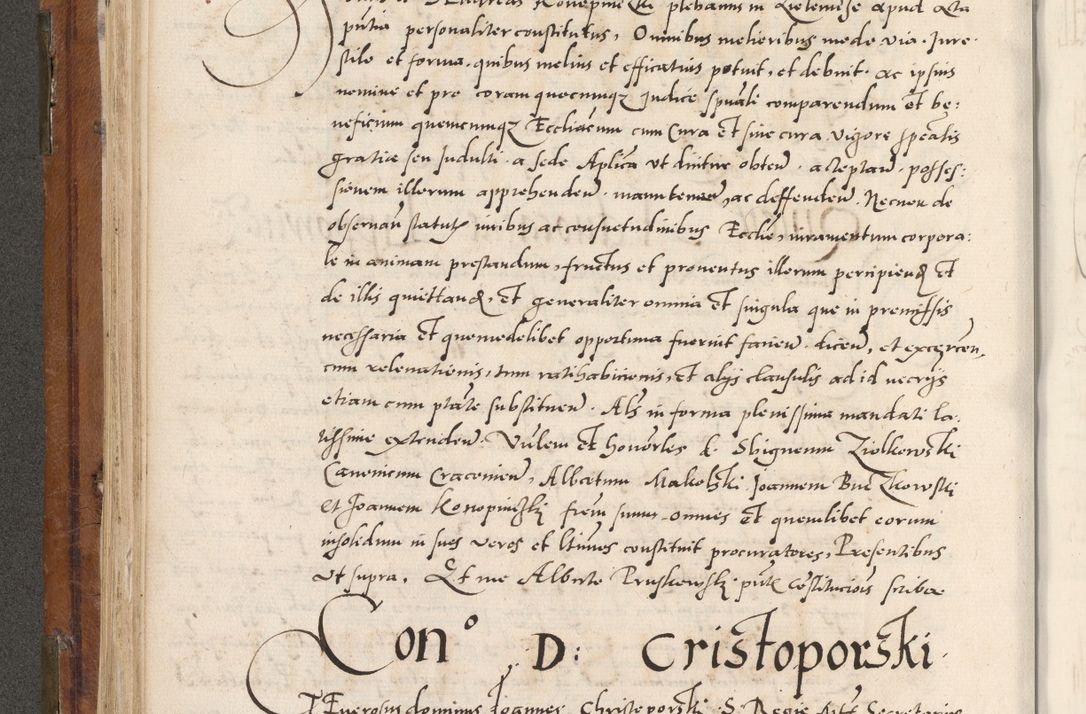 Andreas Konopniczki plebanus in Zielenicze apud Acta
pntia personaliter constitutus, Omnibus melioribus modo via Jure
stilo et forma, quibus melius et efficatius potuit, et debuit. ac ipsius
nomine et pro coram quocumqz Judice spuali comparendum et be:
neficium quemcumqz Eccliacum cum Cura et sine cura vigore spealis
gratiæ seu Indulti. a sede Aplica vt dintur obten. acceptan. posses:
sionem illorum apprehenden. manutenen, ac deffenden. Necnon de
observan statut iuribus ac consuetudinibus Ecclie, iuramentum corpora:
le in animam prestandum, fructus et proventus illorum percipiend et
de illis quiettand, et generaliter omnia et singula que in premissis
necessaria et quomodolibet opportuna fuerint facien. dicen, et exercen,
cum relevationis, tum ratihabicionis, et alijs clausulis ad id necrijs
etiam cum ptate substituen. Als in forma plenissima mandati la,
tissime extenden. Vnlem et honorles d. Sbigneum Ziolkowski
Canonicum Cracovien, Albertum Makolski Joannem Buczkowski
et Joannem Konopinski frem suum omnes et quemlibet eorum
insolidum in suos veros et ltimos constituit procuratores, Presentibus
vt supra, Et me Alberto Pruskowski pnte constitucionis scriba
Con° D: Cristoporski.
Generosus dominus Joannes Christoporski S. Regie Mtis Secretarius